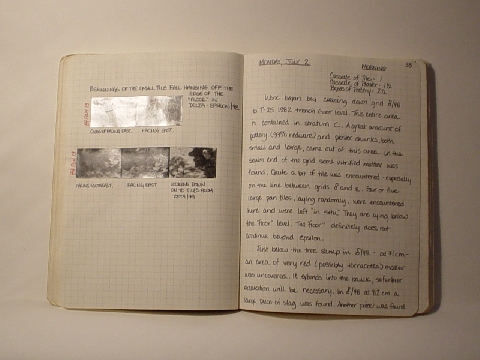 BEGINNINGS OF THE SMALL TILE FALL HANGING OFF THE
EDGE OF THE
"FLOOR" IN
DELTA-EPSILON/98.
FACING EAST.
FACING EAST
LOOKING DOWN
MONDAY, JULY 2
MORNING
38
Work began by cleaning down grid
to 7.25 1982 trench floor level. This entire area
is contained in stratum C. A great amount of
pottery (99% redware) and plaster chunks, both
small and large, came out of this area. In the
south end of the grid some vitrified matter was
found. Quite a bit of this was encountered - especially
on the line between grids
large pan tiles, laying randomly, were encountered
here and were left "in situ." They are lying below
the "floor" level. The "floor" definitely does not
continue beyond epsilon.
Just below the tree stump in
an area of very red (possibly terracotta) matter
was uncovered. It extends into the baulk, so further
excavation will be necessary. In
large piece of slag was found. Another piece was found